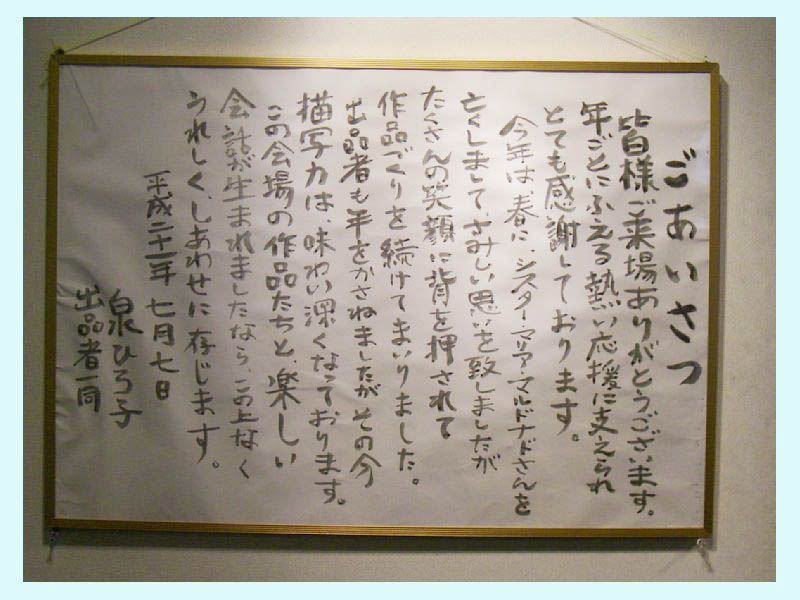 ごあいさつ
皆様ご来場ありがとうございます。
年ごとにふえる熱い応援に支えられ
とても感謝しております。
今年は、春に、シスター・マリア・マルドナドさんを
亡くしまして、さみしい思いを致しましたが
たくさんの笑顔に背を押されて
作品づくりを続けてまいりました。
出品者も年をかさねましたがその分
描写力は、味わい深くなっております。
この会場の作品たちと、楽しい
会話が生まれましたなら、この上なく
うれしく、しあわせに存じます。
平成二十一年 七月七日
泉ひろ子
出品者一同